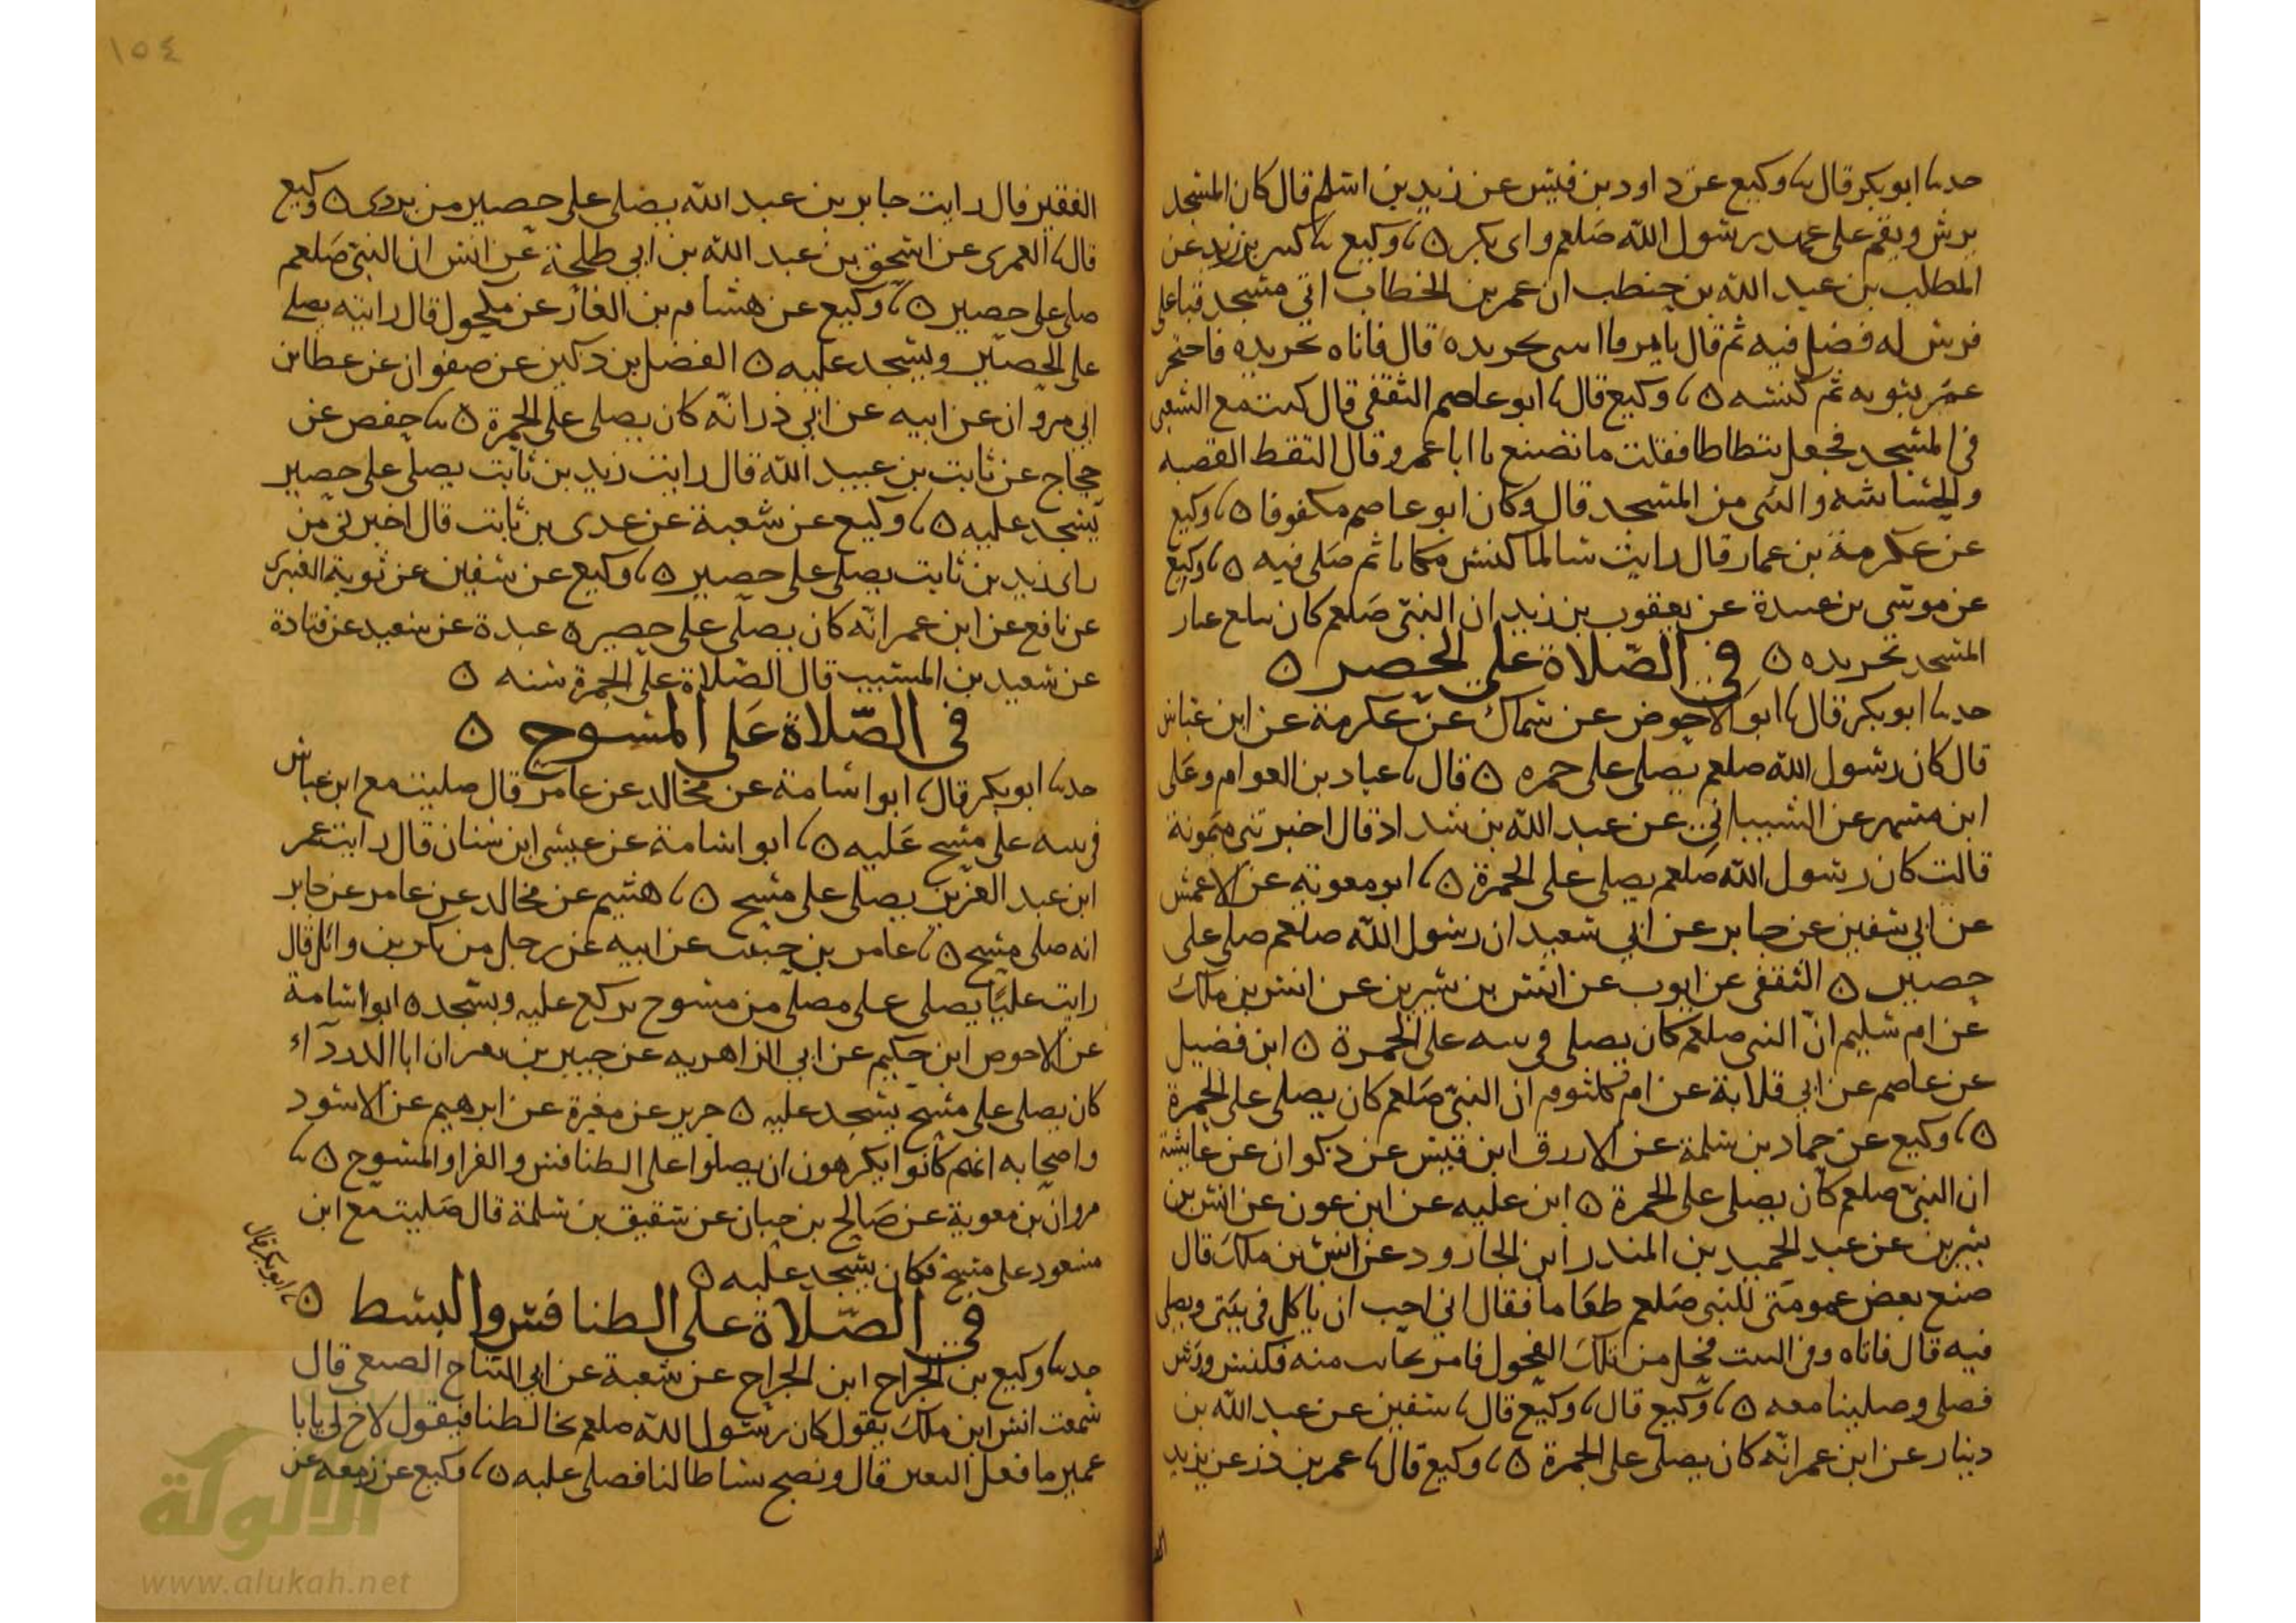 حدثنا ابو بكر قال نا وكيع عن داود بن قيس عن زيد بن اسلم قال كان المسجد
يرش ويقم على عهد رسول الله صلعم وابى بكر ن نا وكيع نا كثير بن زيد عن
المطلب بن عبد الله بن حنطب ان عمر بن الخطاب اتى مسجد قبا على
فرس له فصلى فيه ثم قال يا يرفا ائتنى بجريده قال فاتاه بجريده فاحتجز
عمر بثوبه ثم كنسه ن نا وكيع قال نا ابو عاصم الثقفى قال كنت مع الشعبى
فى المسجد فجعل يتطاطا فقلت ما تصنع يا ابا عمرو قال التقط القصبه
والخشاشه والشى من المسجد قال وكان ابو عاصم مكفوفا ن نا وكيع
عن عكرمة بن عمار قال رايت سالما كنس مكانا ثم صلى فيه ن نا وكيع
عن موسى بن عبيدة عن يعقوب بن زيد ان النبى صلعم كان يتبع غبار
المسجد بجريده ن فى الصلاة على الحصر ن
حدثنا ابو بكر قال نا ابو الاحوص عن سماك عن عكرمة عن ابن عباس
قال كان رسول الله صلعم يصلى على خمره ن قال نا عباد بن العوام وعلى
ابن مسهر عن الشيبانى عن عبد الله بن شداد قال اخبرتنى ميمونة
قالت كان رسول الله صلعم يصلى على الخمرة ن نا ابو معوية عن الاعمش
عن ابى سفين عن جابر عن ابى سعيد ان رسول الله صلعم صلى على
حصير ن الثقفى عن ايوب عن انس بن سيرين عن انس بن ملك
عن ام سليم ان النبى صلعم كان يصلى فى بيته على الخمرة ن ابن فضيل
عن عاصم عن ابى قلابة عن ام كلثوم ان النبى صلعم كان يصلى على الخمرة
ن نا وكيع عن حماد بن سلمة عن الازرق ابن قيس عن ذكوان عن عايشة
ان النبى صلعم كان يصلى على الخمرة ن ابن عليه عن ابن عون عن انس بن
سيرين عن عبد الحميد بن المنذر ابن الجارود عن انس بن ملك قال
صنع بعض عمومتى للنبى صلعم طعاما فقال انى احب ان ياكل فى بيتى ويصلى
فيه قال فاتاه وفى البيت فحل من تلك الفحول فامر بجانب منه فكنس ورش
فصلى وصلينا معه ن نا وكيع قال نا وكيع قال نا سفين عن عبد الله بن
دينار عن ابن عمر انه كان يصلى على الخمرة ن نا وكيع قال نا عمر بن ذر عن يزيد
١٥٤
الفقير قال رايت جابر بن عبد الله يصلى على حصير من بردى ن وكيع
قال نا العمرى عن اسحق بن عبد الله بن ابى طلحة عن انس ان النبى صلعم
صلى على حصير ن نا وكيع عن هشام بن الغاز عن مكحول قال رايته يصلى
على الحصير ويسجد عليه ن الفضل بن دكين عن صفوان عن عطا بن
ابى مروان عن ابيه عن ابى ذر انه كان يصلى على الخمرة ن نا حفص عن
حجاج عن ثابت بن عبيد الله قال رايت زيد بن ثابت يصلى على حصير
يسجد عليه ن نا وكيع عن شعبة عن عدى بن ثابت قال اخبرنى من
راى زيد بن ثابت يصلى على حصير ن نا وكيع عن سفين عن توبة العنبرى
عن نافع عن ابن عمر انه كان يصلى على حصير ن عبدة عن سعيد عن قتادة
عن سعيد بن المسيب قال الصلاة على الخمرة سنه ن
فى الصلاة على المسوح ن
حدثنا ابو بكر قال نا ابو اسامة عن مجالد عن عامر قال صليت مع ابن عباس
فى بيته على مسح عليه ن نا ابو اسامة عن عيسى ابن سنان قال رايت عمر
ابن عبد العزيز يصلى على مسح ن نا هشيم عن مجالد عن عامر عن جابر
انه صلى مسح ن نا عامر بن عن ابيه عن رجل من بكر بن وائل قال
رايت عليا يصلى على مصلى من مسوح يركع عليه ويسجد ن ابو اسامة
عن الاحوص ابن حكيم عن ابى الزاهريه عن جبير بن نفير ان ابا الدرداء
كان يصلى على مسح يسجد عليه ن جرير عن مغيرة عن ابرهيم عن الاسود
واصحابه انهم كانوا يكرهون ان يصلوا على الطنافس والفرا والمسوح ن نا
مروان بن معوية عن صالح بن حيان عن شقيق بن سلمة قال صليت مع ابن
مسعود على مسح فكان يسجد عليه ن
فى الصلاة على الطنافس والبسط ن
نا ابو بكر قال
حدثنا وكيع بن الجراح ابن الجراح عن شعبة عن ابى التياح الضبعى قال
سمعت انس ابن ملك يقول كان رسول الله صلعم يخالطنا فيقول لاخ لى يابا
عمير ما فعل النغير قال ونضح بساطا لنا فصلى عليه ن نا وكيع عن زمعه عن
الالوكة
www.alukah.net